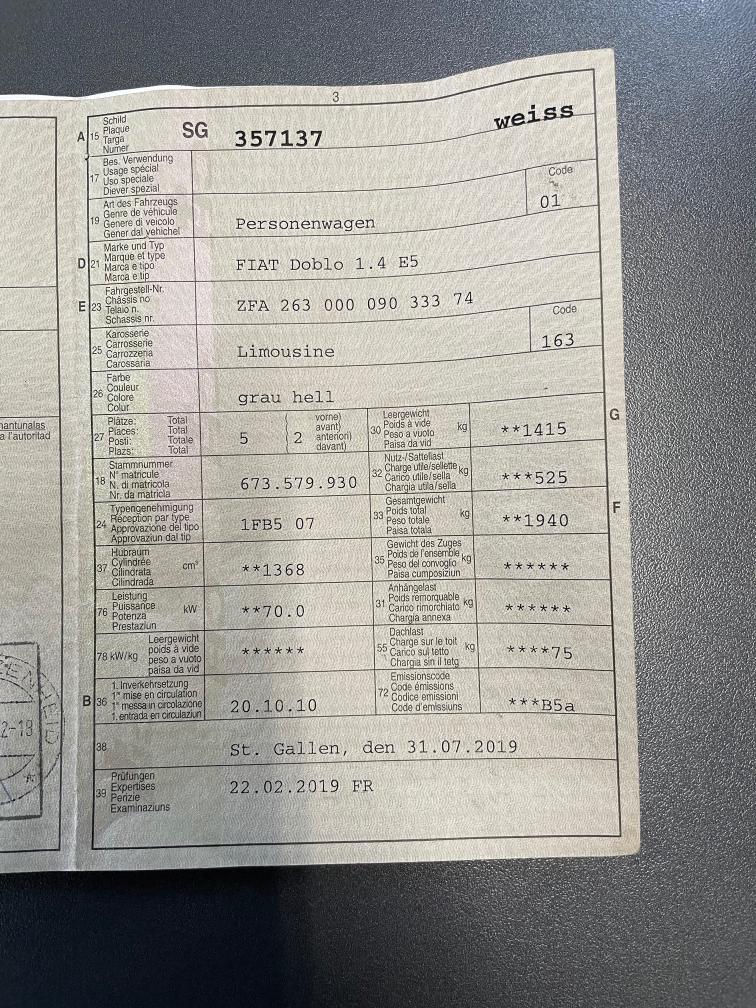 3
A 15 Schild
Plaque
Targa
Numer
SG 357137 weiss
17 Bes. Verwendung
Usage spécial
Uso speciale
Diever spezial
Code
01
19 Art des Fahrzeugs
Genre de véhicule
Genere di veicolo
Gener dal vehichel
Personenwagen
D 21 Marke und Typ
Marque et type
Marca e tipo
Marca e tip
FIAT Doblo 1.4 E5
E 23 Fahrgestell-Nr.
Châssis no
Telaio n.
Schassis nr.
ZFA 263 000 090 333 74
25 Karosserie
Carrosserie
Carrozzeria
Carossaria
Limousine
Code
163
26 Farbe
Couleur
Colore
Colur
grau hell
27 Plätze: Total
Places: Total
Posti: Totale
Plazs: Total
5 2
vorne)
avant)
anteriori)
davant)
G
30 Leergewicht
Poids à vide
Peso a vuoto
Paisa da vid
kg
**1415
18 Stammnummer
N° matricule
N. di matricola
Nr. da matricla
673.579.930
32 Nutz-/Sattellast
Charge utile/sellette
Carico utile/sella
Chargia utila/sella
kg
***525
24 Typengenehmigung
Réception par type
Approvazione del tipo
Approvaziun dal tip
1FB5 07
F
33 Gesamtgewicht
Poids total
Peso totale
Paisa totala
kg
**1940
37 Hubraum
Cylindrée
Cilindrata
Cilindrada
cm³
**1368
35 Gewicht des Zuges
Poids de l'ensemble
Peso del convoglio
Paisa cumposiziun
kg
******
76 Leistung
Puissance
Potenza
Prestaziun
kW
**70.0
31 Anhängelast
Poids remorquable
Carico rimorchiato
Chargia annexa
kg
******
78 kW/kg
Leergewicht
poids à vide
peso a vuoto
paisa da vid
******
55 Dachlast
Charge sur le toit
Carico sul tetto
Chargia sin il tetg
kg
****75
B 36 1. Inverkehrsetzung
1re mise en circulation
1a messa in circolazione
1. entrada en circulaziun
20.10.10
72 Emissionscode
Code émissions
Codice emissioni
Code d'emissiuns
***B5a
38
St. Gallen, den 31.07.2019
39 Prüfungen
Expertises
Perizie
Examinaziuns
22.02.2019 FR